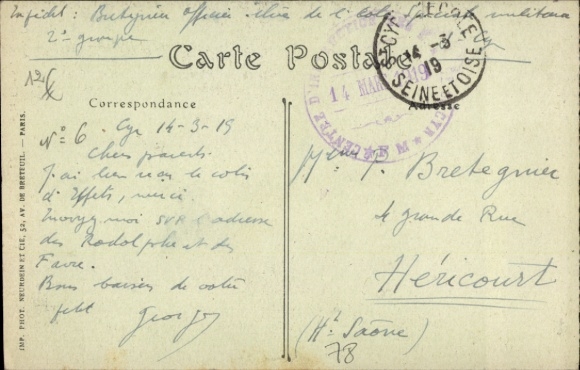 Expédit : Bretegnier officier élève de l'Ecole spéciale militaire
2e groupe
Carte Postale
ST CYR L'ECOLE
14 -3 19
SEINE ET OISE
14 MARS 1919
CENTRE D'IN
Correspondance
Adresse
N° 6. Cyr 14-3-19
Chers parents
J'ai bien reçu le colis
d'Effets, merci.
Envoyez moi SVP l'adresse
des Rodolphe et des
Favre.
Bons baisers de votre
petit
Georges
Bretegnier
grande Rue
Héricourt
(Hte Saône)
78
IMP. PHOT. NEURDEIN ET CIE, 52, AV. DE BRETEUIL. — PARIS.